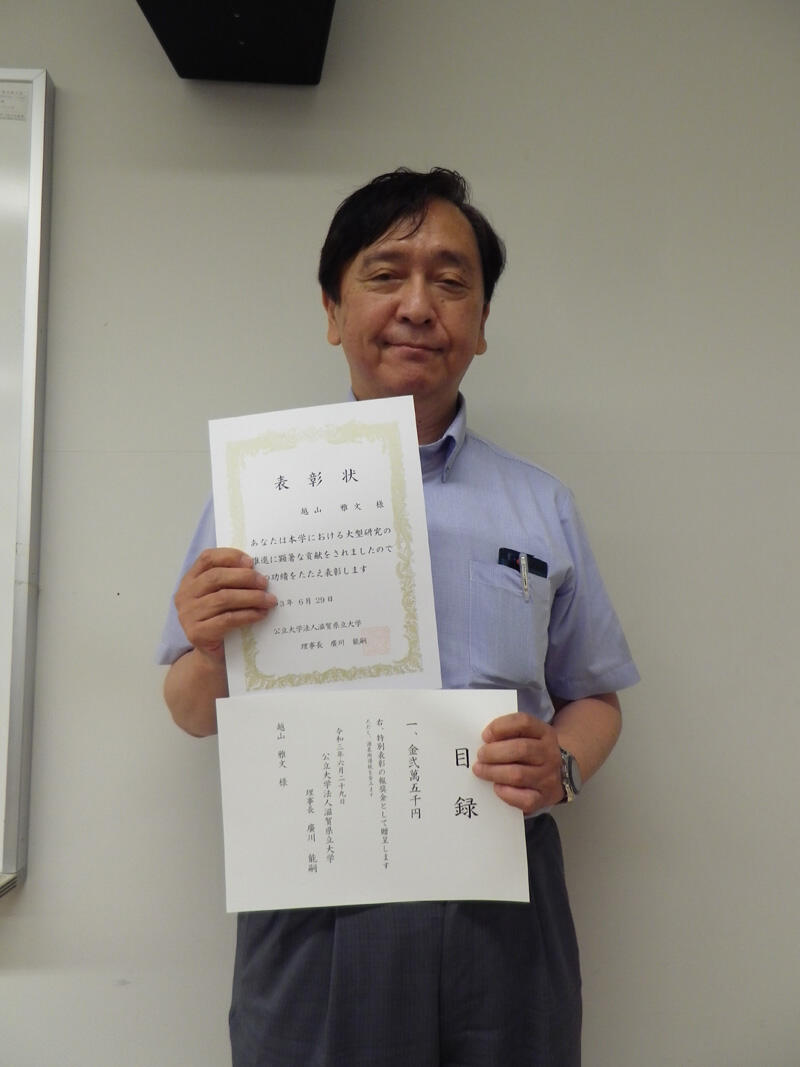 表彰状
越山 雅文 様
あなたは本学における大型研究の
推進に顕著な貢献をされましたので
の功績をたたえ表彰します
3年 6月 29日
公立大学法人滋賀県立大学
理事長 廣川 能嗣
目録
一、金弐萬五千円
右、特別表彰の報奨金として贈呈します
ただし、源泉所得税を含みます
令和三年六月二十九日
公立大学法人滋賀県立大学
理事長 廣川 能嗣
越山 雅文 様